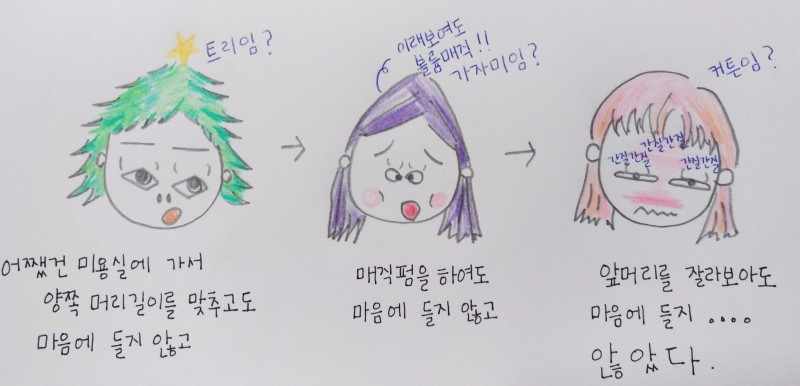 트리임?
어쨌건 미용실에 가서
양쪽 머리길이를 맞추고도
마음에 들지 않고
이래보여도
볼륨매직!!
가자미임?
매직펌을 하여도
마음에 들지 않고
커튼임?
간질간질
간질간질
간질간질
앞머리를 잘라보아도
마음에 들지 ....
않았다.